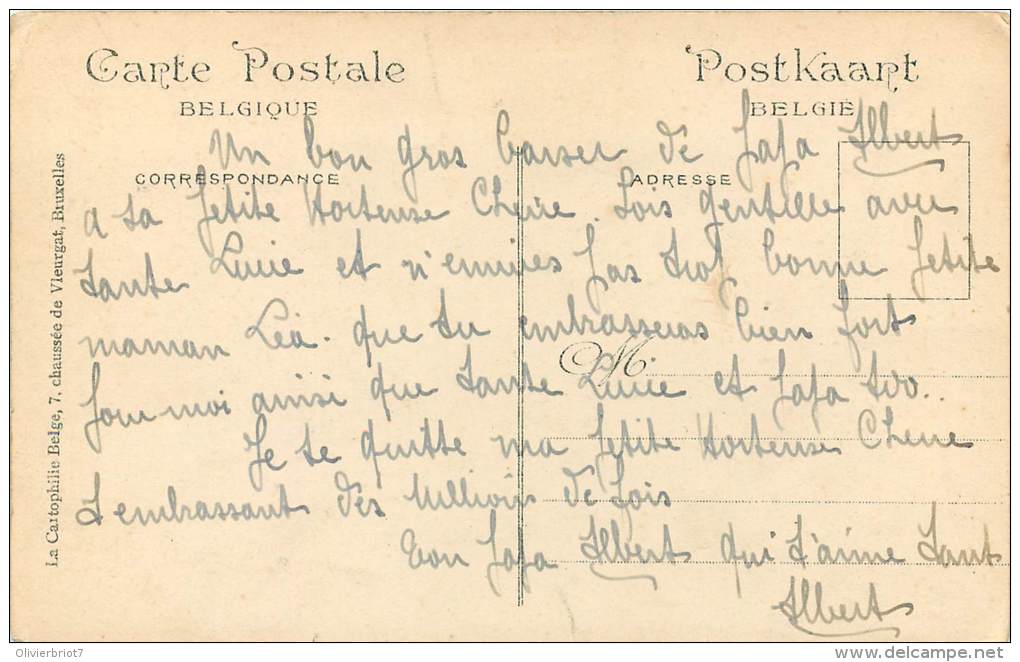 Carte Postale Postkaart
BELGIQUE BELGIË
Un bon gros baiser de Papa Albert
CORRESPONDANCE ADRESSE
a sa petite Hortense Cherie. Sois gentille avec
tante Lucie et n'ennuies pas trop bonne petite
maman Léa. que tu embrasseras bien fort
M
pour moi ainsi que tante Lucie et papa
Je te quitte ma petite Hortense Cherie
t'embrassant des Millions de fois
Ton Papa Albert qui t'aime tant
Albert
La Cartophilie Belge, 7, chaussée de Vleurgat, Bruxelles
Olivierbriot7
delcampe.net